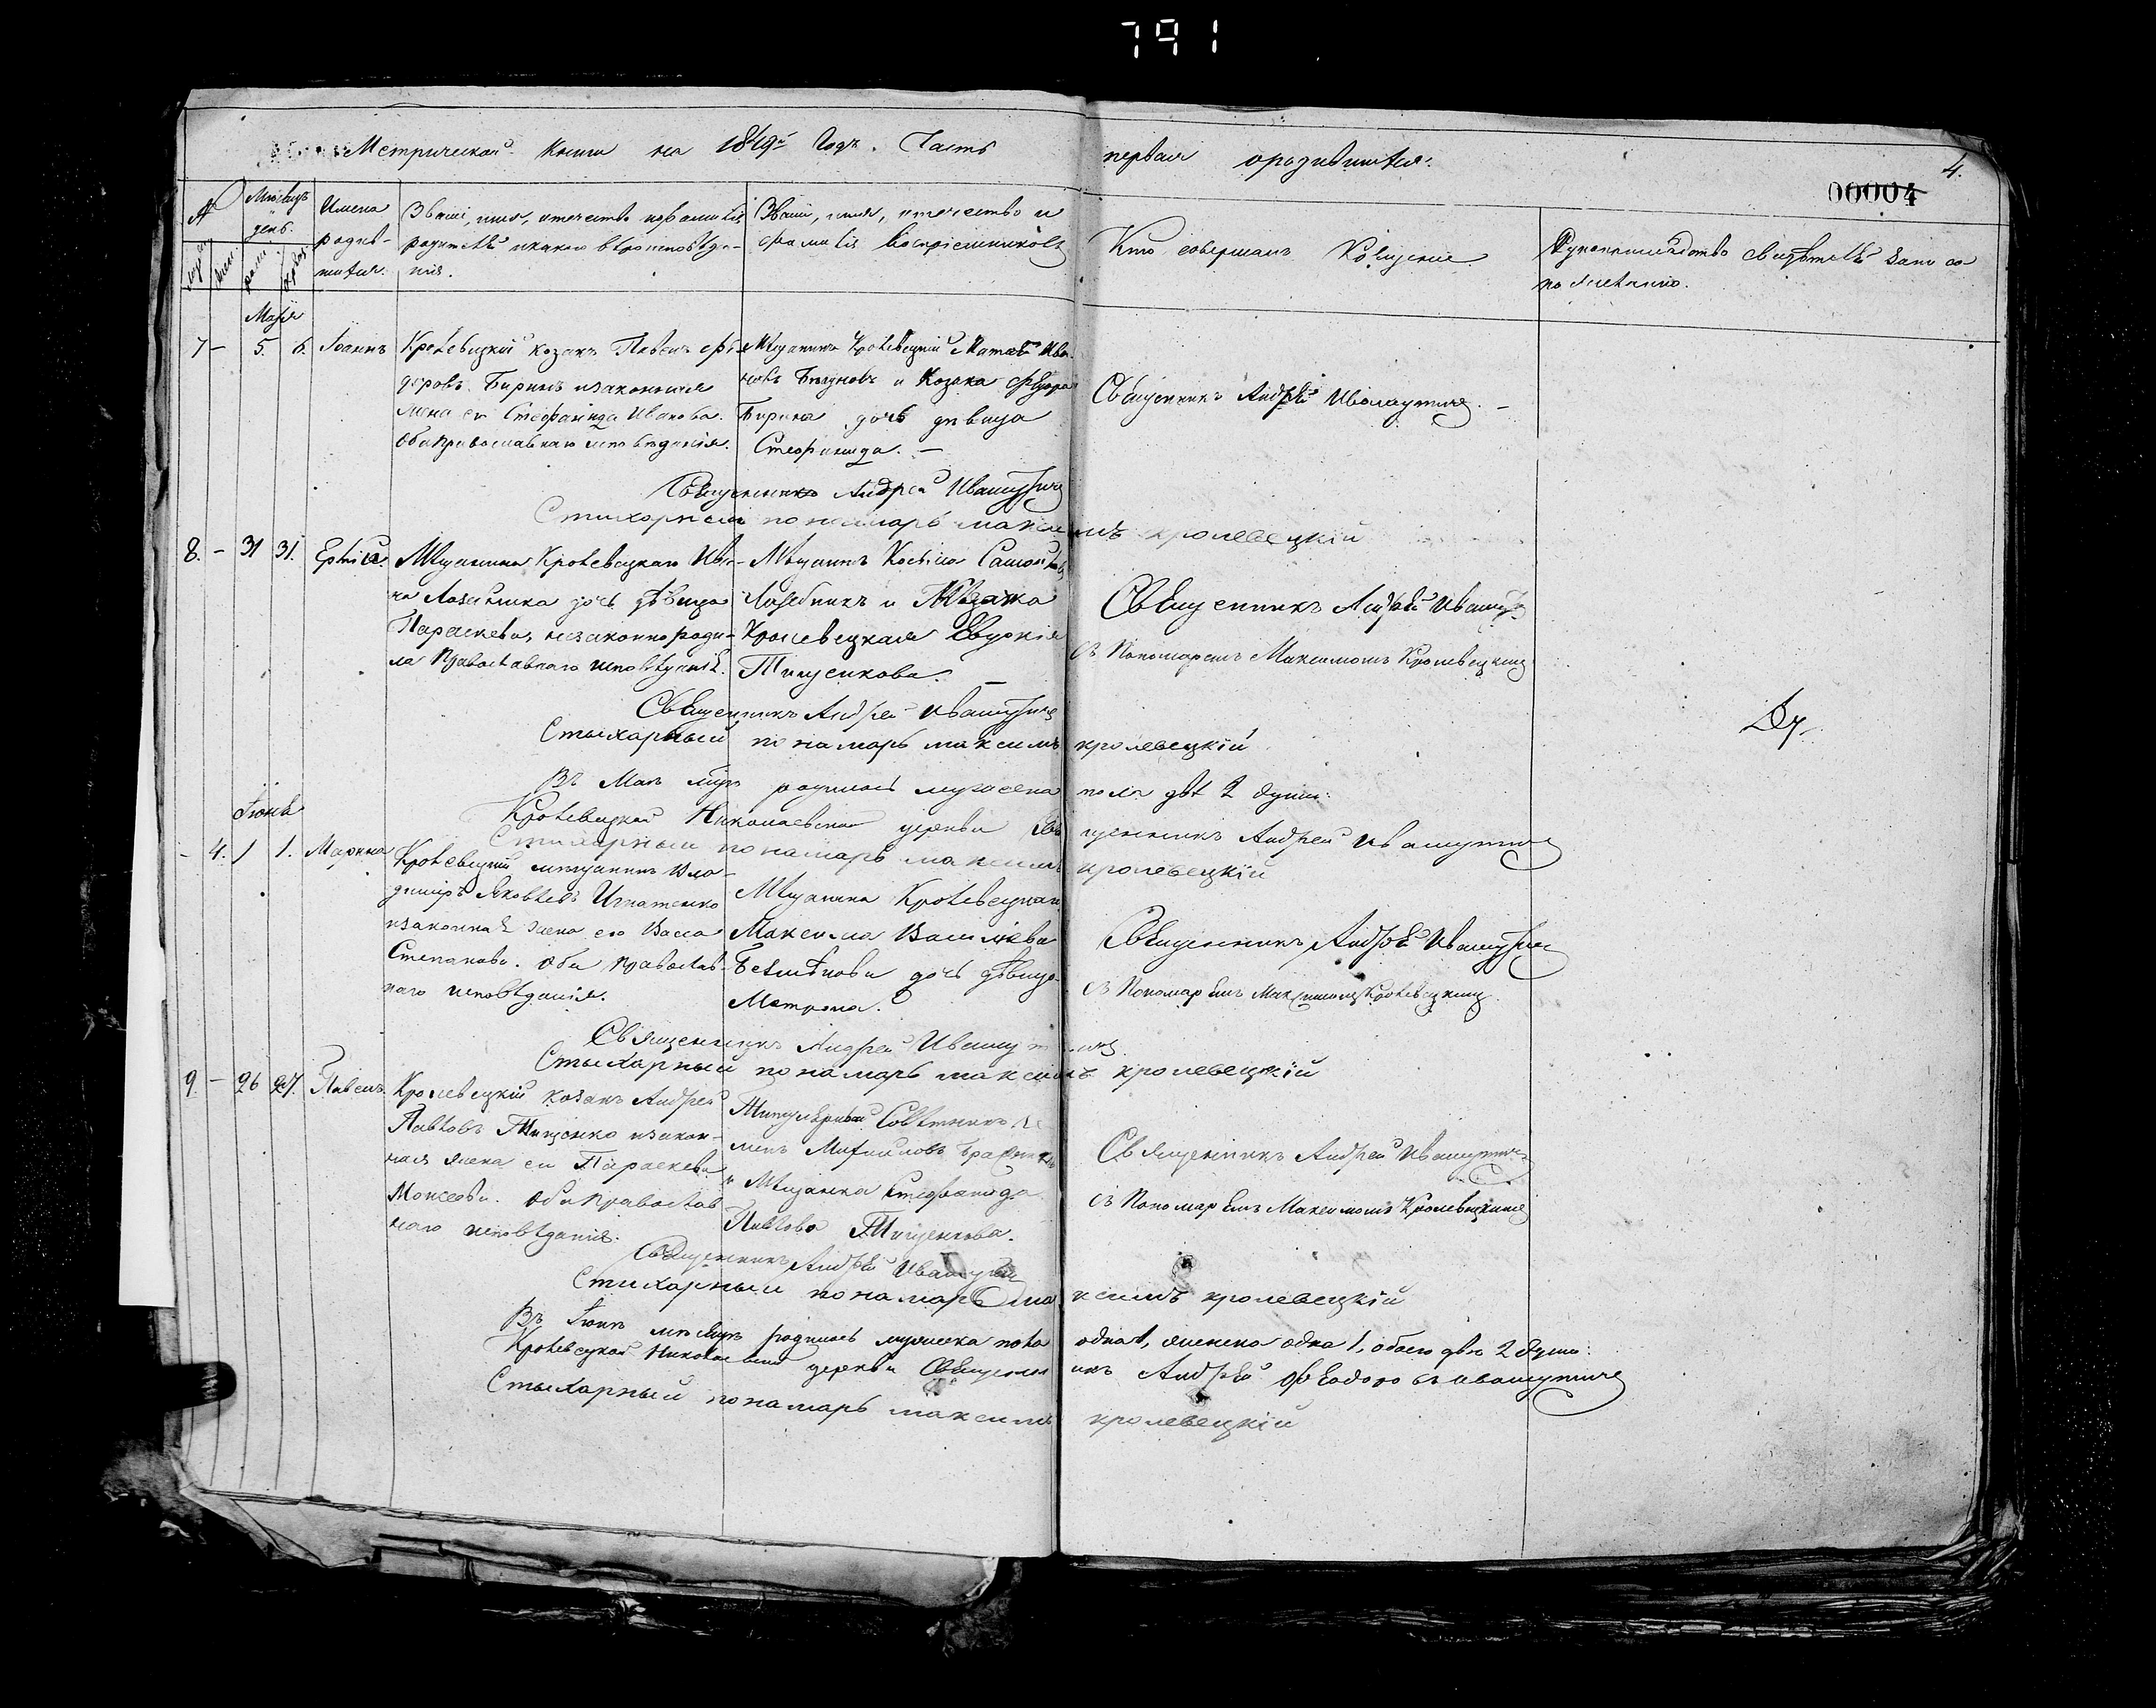 791
Метрической книги на 1849й Годъ. Часть первая о родившихся.
4.
00004
№ Мѣсяцъ и день. Имена родив-шихся.
Званіе, имя, отечество и фамилія родителей и какого вѣроисповѣда-нія.
Званіе, имя, отечество и фамилія Воспріемниковъ
Кто совершалъ Крещеніе.
Рукоприкладство свидѣтелей записи по желанію.
Маія
7 – 5. 6. Іоаннъ
Кролевецкій козакъ Павелъ
доровъ Биринъ и законная
жена ег Стефанида Иванова.
Оба православнаго исповѣданія.
Мѣщанинъ Кролевецкій Матвѣй Ива-
новъ и Козака Ѳедора
Бирина дочь дѣвица
Стефанида. –
Священникъ Андрей Ивашутичъ. –
Священникъ Андрей Ивашутичъ
Стихарный пономарь максимъ кролевецкій
8. – 31 31.
Мѣщанина Кролевецкаго Ива-
на дочь дѣвица
Параскева, незаконно роди-
ла Православнаго исповѣданія.
Мѣщанинъ Косьма
и
Кролевецкая Евдокія
Тищенкова. –
Священникъ Андрей Ивашутичъ
съ Пономаремъ Максимомъ Кролевецкимъ
Священникъ Андрей Ивашутичъ
Стыхарный понамарь максимъ кролевецкій
Въ Маѣ родилось мужеска пола двѣ 2 души.
Кролевецкой Николаевской церкви Священникъ Андрей Ивашутичъ
Стихарный понамарь максимъ кролевецкій
Іюнь
– 4. 1 1. Марина
Кролевецкій мѣщанинъ Вла-
димиръ Яковлевъ Игнатенко
и законная жена его Васса
Степанова. Оба православ-
наго исповѣданія.
Мѣщанина Кролевецкаго
Максима Васильева
дочь дѣвица
Матрона.
Священникъ Андрей Ивашутичъ
съ Пономаремъ Максимомъ Кролевецкимъ.
Священникъ Андрей Ивашутичъ
Стыхарный понамарь максимъ кролевецкій
9. – 26 27. Павелъ.
Кролевецкій козакъ Андрей
Павловъ Тищенко и закон-
ная жена ег Параскева
Моисеева. Оба Православ
наго исповѣданія.
Титулярный Совѣтникъ
Михайловъ
и Мѣщанка Стефанида
Павлова Тищенкова.
Священникъ Андрей Ивашутичъ
съ Пономаремъ Максимомъ Кролевецкимъ
Священникъ Андрей Ивашутичъ
Стихарный понамарь максимъ кролевецкій
Въ Іюнѣ мѣсяцѣ родилось мужеска пола одна 1, женска одна 1, обоего двѣ 2 души.
Кролевецкой Николаевской церкви Священникъ Андрей Ѳеодоровъ Ивашутичъ
Стыхарный понамарь максимъ кролевецкій